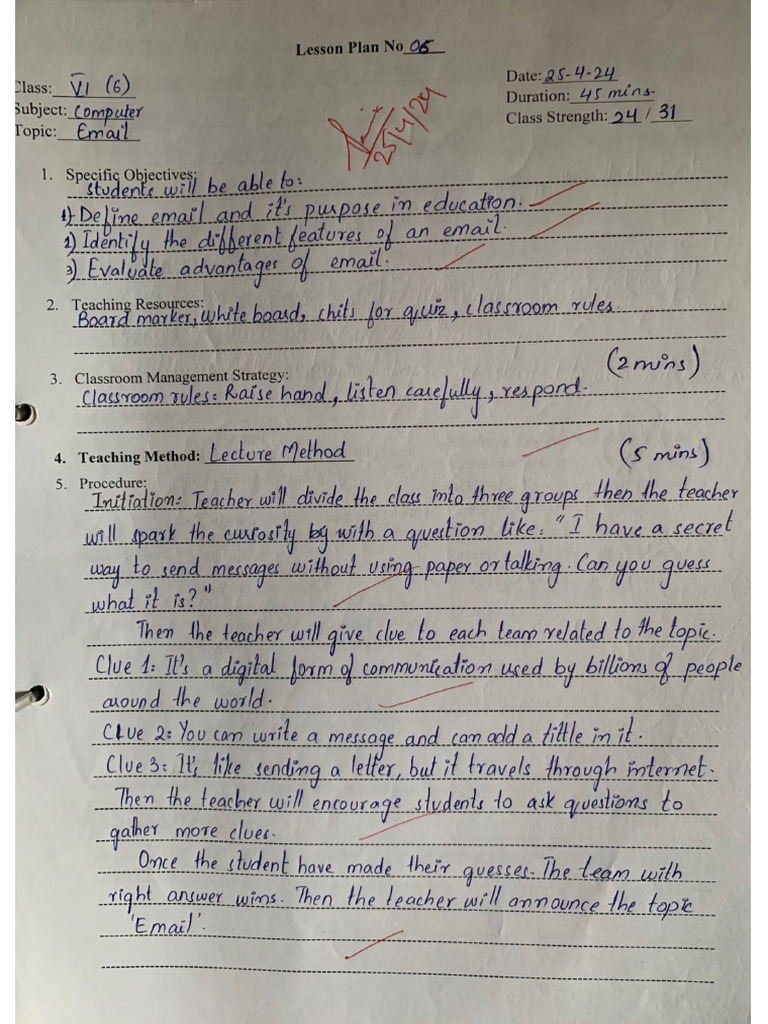 Lesson Plan No 06
Class: VI (6)
Date: 25-4-24
Subject: Computer
Duration: 45 mins.
Topic: Email
Class Strength: 24 / 31
25/4/24
1. Specific Objectives:
Students will be able to:
1) Define email and it's purpose in education.
2) Identify the different features of an email.
3) Evaluate advantages of email.
2. Teaching Resources:
Board marker, white board, chits for quiz, classroom rules.
(2 mins)
3. Classroom Management Strategy:
Classroom rules: Raise hand, listen carefully, respond.
4. Teaching Method: Lecture Method
(5 mins)
5. Procedure:
Initiation: Teacher will divide the class into three groups then the teacher
will spark the curiosity by with a question like: "I have a secret
way to send messages without using paper or talking. Can you guess
what it is?"
Then the teacher will give clue to each team related to the topic.
Clue 1: It's a digital form of communication used by billions of people
around the world.
Clue 2: You can write a message and can add a tittle in it.
Clue 3: It's like sending a letter, but it travels through internet.
Then the teacher will encourage students to ask questions to
gather more clues.
Once the student have made their guesses. The team with
right answer wins. Then the teacher will announce the topic
'Email'.